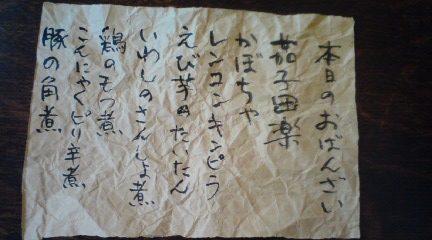 本日のおばんざい
茄子田楽
かぼちゃ
レンコンキンピラ
えび芋のたいたん
いわしのさんしょ煮
鶏のもつ煮
こんにゃくピリ辛煮
豚の角煮